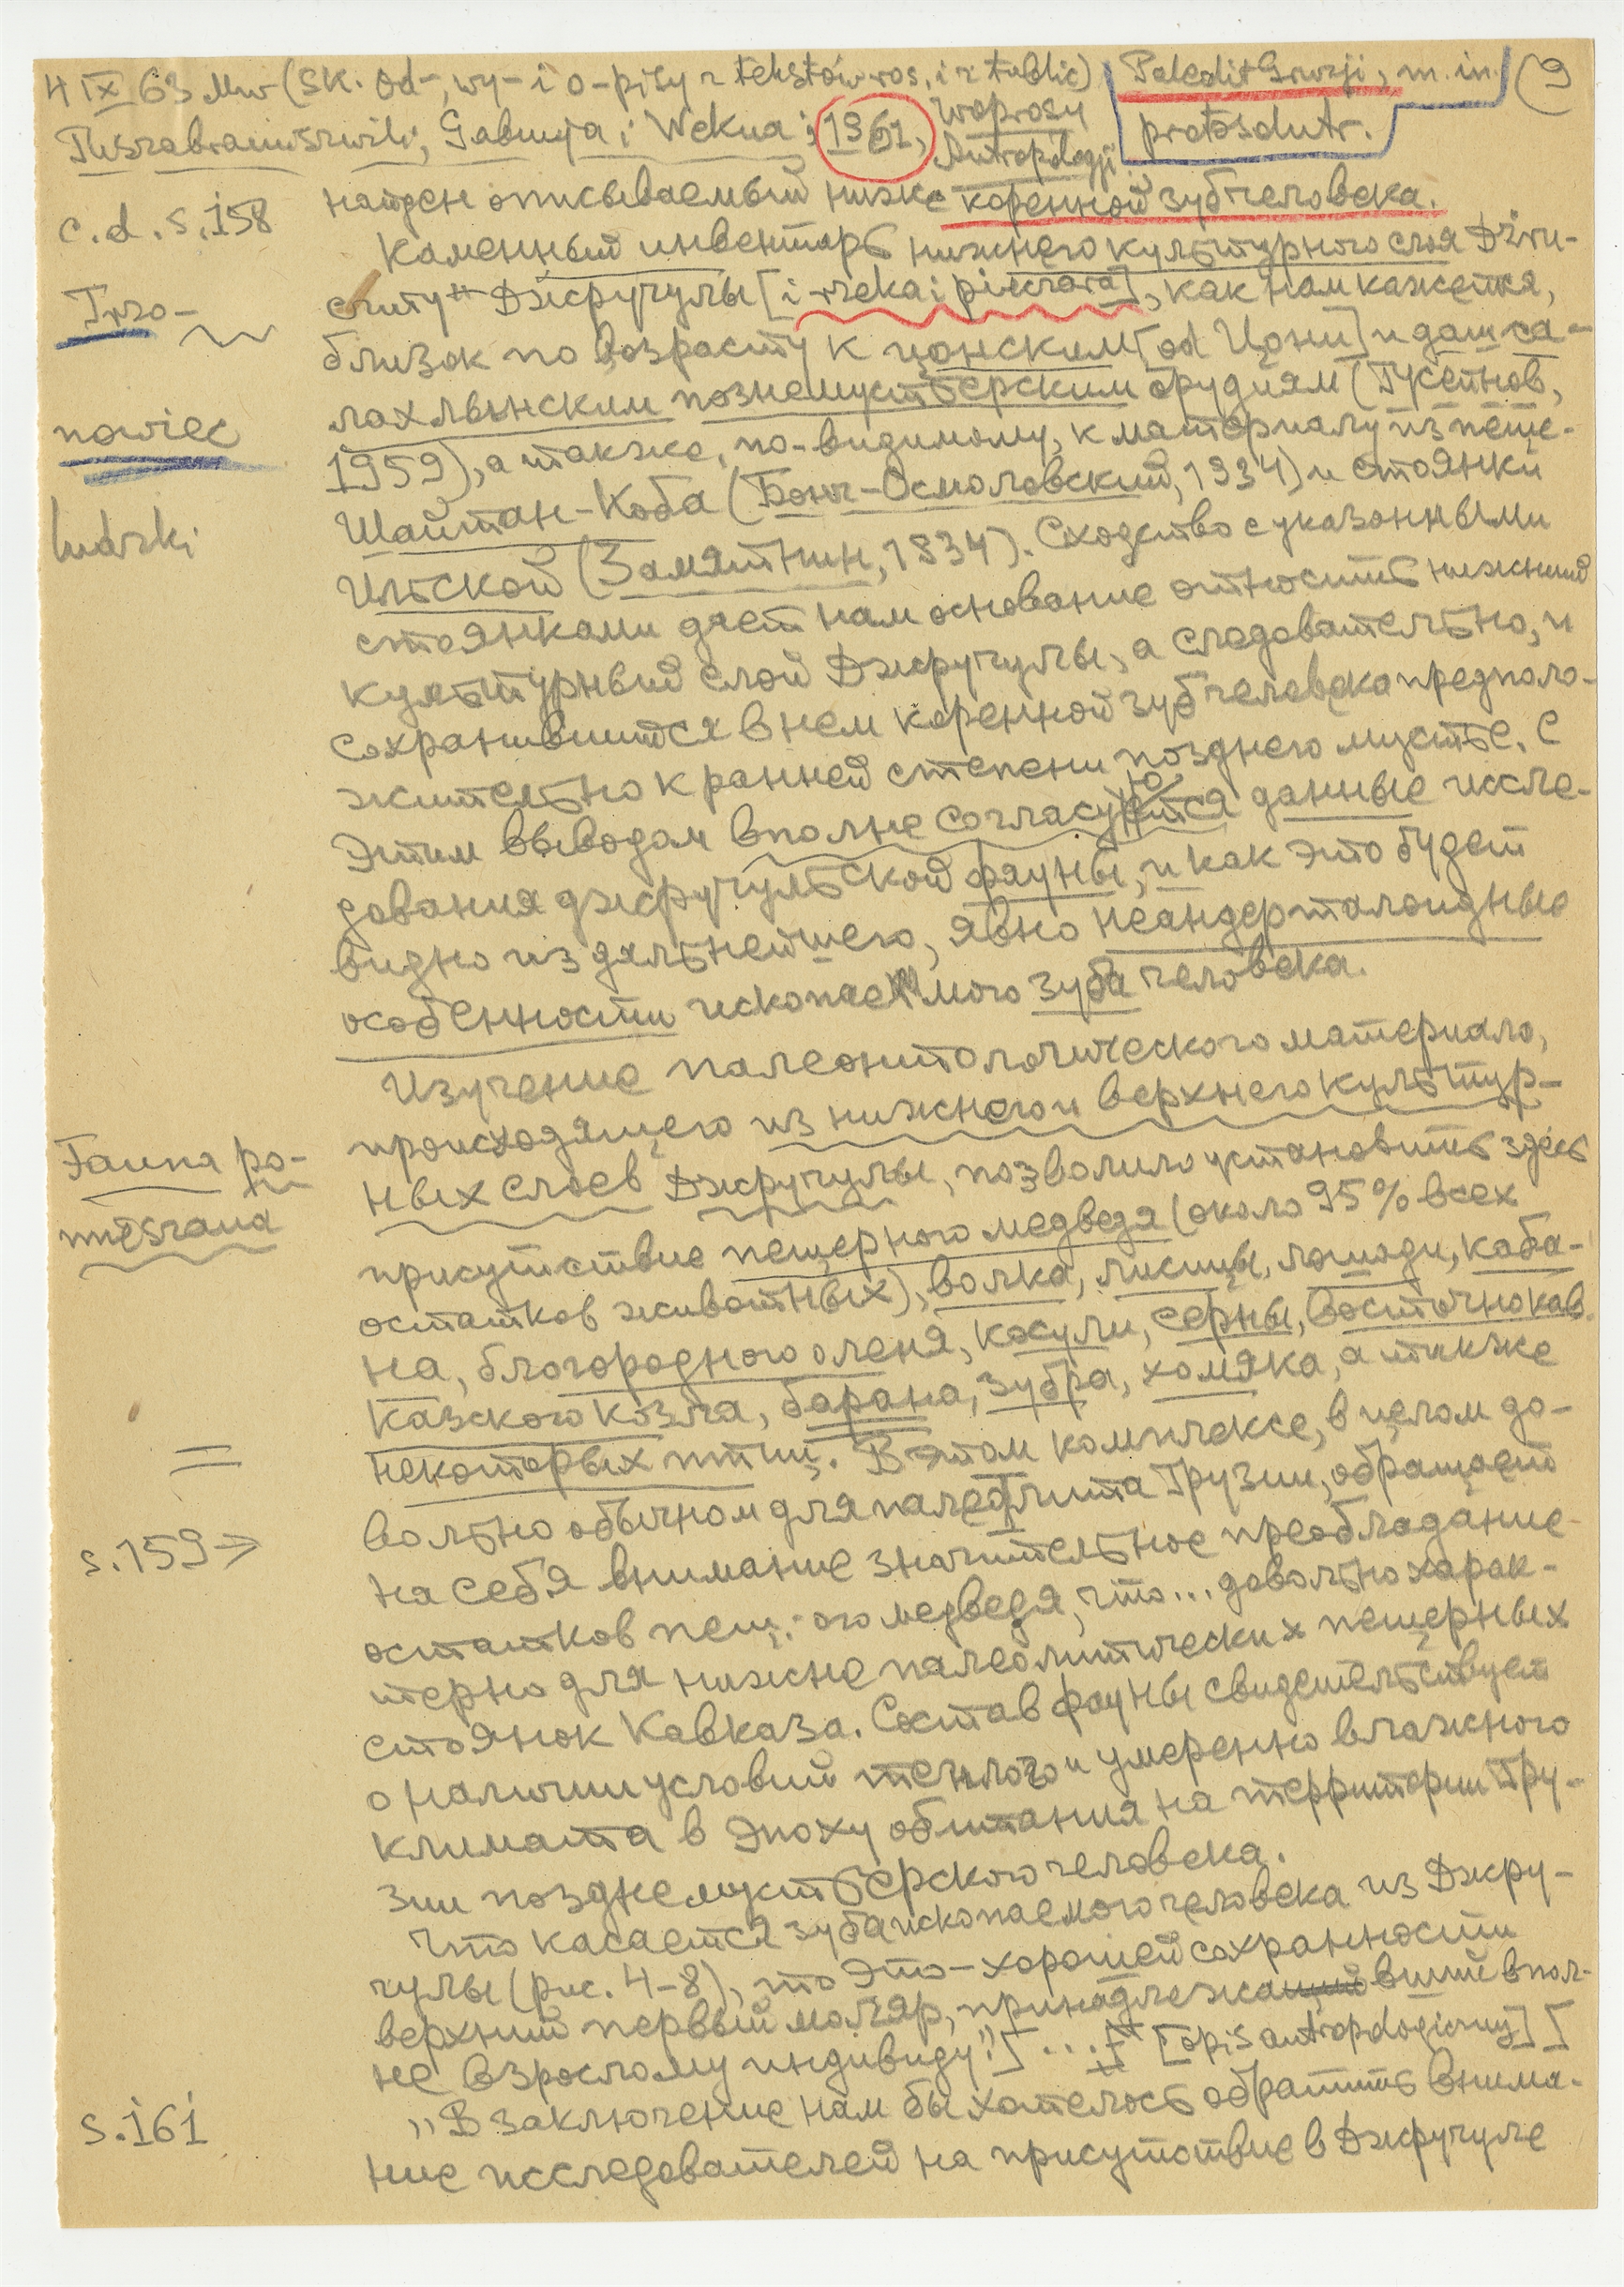 4 IX 63 Mw (sk. od-, wy- i o-pisy z tekstów ros. i z tablic) Paleolit Gruzji, m. in. (9
Tuszabramiszwili, Gabunja i Wekua; 1961, Woprosy protosolutr.
Antropologii
c. d. s. 158 найден описываемый ниже коренной зуб человека.
Каменный инвентарь нижнего культурного слоя Džru-
Trzo- czuły" Джручулы [i rzeka i pieczara], как нам кажется,
близок по возрасту к цонским [od Цони] и даш са-
лахлынским познемустьерским орудиям (Гусейнов,
nowiec 1959), а также, по-видимому, к материалу из пеще-
Шайтан-Коба (Бонч-Осмоловский, 1934) и стоянки
ludzki Ильской (Замятнин, 1934). Сходство с указанными
стоянками дает нам основание относить нижний
культурный слой Джручулы, а следовательно, и
сохранившийся в нем коренной зуб человека предполо-
жительно к ранней степени позднего мустье. С
этим выводом вполне согласуются данные иссле-
дования джручульской фауны, и как это будет
видно из дальнейшего, явно неандерталоидные
особенности ископаемого зуба человека.
Изучение палеонтологического материала,
происходящего из нижнего и верхнего культур-
Fauna po- ных слоев Джручулы, позволило установить здесь
mieszana присутствие пещерного медведя (около 95% всех
остатков животных), волка, лисицы, лошади, каба-
на, благородного оленя, косули, серны, восточнокав
казского козла, барана, зубра, хомяка, а также
= некоторых птиц. В этом комплексе, в целом до-
вольно обычном для палеолита Грузии, обращает
s. 159 → на себя внимание значительное преобладание
остатков пещ. -ого медведя, что... довольно харак-
терно для нижне палеолитических пещерных
стоянок Кавказа. Состав фауны свидетельствует
о наличии условий теплого и умеренно влажного
климата в эпоху обитания на территории Гру-
зии позднемустьерского человека.
Что касается зуба ископаемого человека из Джру-
чулы (рис. 4-8), то это - хорошей сохранности
верхний первый моляр, принадлежащий вший впол-
не взрослому индивиду". [...] [opis antropologiczny] [
„В заключение нам бы хотелось обратить внима-
s. 161 ние исследователей на присутствие в Джручуле